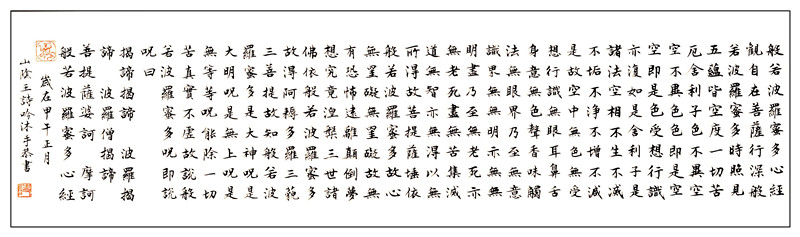 般若波羅蜜多心經
觀自在菩薩行深般
若波羅蜜多時照見
五蘊皆空度一切苦
厄舍利子色不異空
空不異色色即是空
空即是色受想行識
亦復如是舍利子是
諸法空相不生不滅
不垢不淨不增不減
是故空中無色無受
想行識無眼耳鼻舌
身意無色聲香味觸
法無眼界乃至無意
識界無無明亦無無
明盡乃至無老死亦
無老死盡無苦集滅
道無智亦無得以無
所得故菩提薩埵依
般若波羅蜜多故心
無罣礙無罣礙故無
有恐怖遠離顛倒夢
想究竟涅槃三世諸
佛依般若波羅蜜多
故得阿耨多羅三藐
三菩提故知般若波
羅蜜多是大神呪是
大明呪是無上呪是
無等等呪能除一切
苦真實不虛故說般
若波羅蜜多呪即說
呪曰
揭諦揭諦 波羅揭
諦 波羅僧揭諦
菩提薩婆訶 摩訶
般若波羅蜜多心經
歲在甲午正月
山陰王詩吟沐手恭書